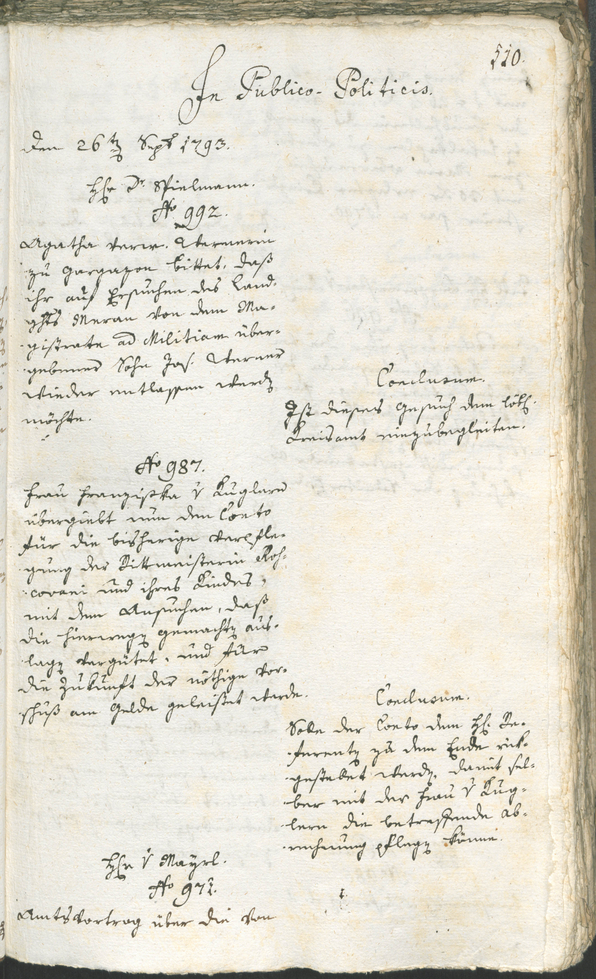 510.
In Publico-Politicis.
Den 26ten Sept 1793.
Hr Dr Spielmann.
No 992.
Agatha verw. Wernerin
zu Gargazon bittet, daß
ihr auf Ersuchen des Land-
ghts Meran von dem Ma-
gistrate ad Militiam über-
gebener Sohn Jos. Werner
wieder entlassen werden
möchte.
Conclusum.
Ist dieses Gesuch dem löbl.
Kreisamt einzubegleiten.
No 987.
Frau Franziska v Kuglern
übergiebt nun den Conto
für die bisherige Verpfle-
gung der Rittmeisterin
und ihres Kindes,
mit dem Ansuchen, daß
die hierwegen gemachten Aus-
lagen vergütet, und für
die Zukunft der nöthige Vor-
schuß am Gelde geleistet werde.
Conclusum.
Solle der Conto dem Hl. Re-
ferenten zu dem Ende rük-
gestellet werden, damit sel-
ber mit der Frau v Kug-
lern die betreffende Ab-
rechnung pflegen könne.
Hr v Mayrl.
No 971.
Amtsvortrag über die von